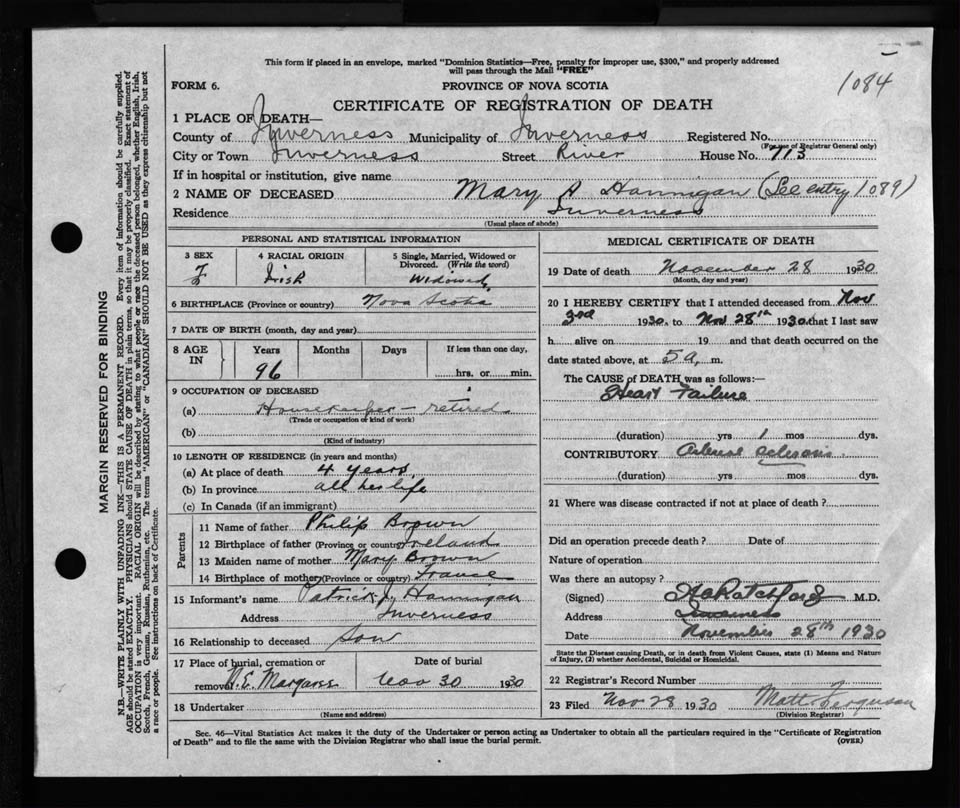 This form if placed in an envelope, marked "Dominion Statistics—Free, penalty for improper use, $300," and properly addressed
will pass through the Mail "FREE"
1084
FORM 6.
PROVINCE OF NOVA SCOTIA
CERTIFICATE OF REGISTRATION OF DEATH
1 PLACE OF DEATH—
County of Inverness Municipality of Inverness Registered No.
(For use of Registrar General only)
City or Town Inverness Street River House No. 113
If in hospital or institution, give name
2 NAME OF DECEASED Mary A Hannigan (See entry 1089)
Residence Inverness
(Usual place of abode)
PERSONAL AND STATISTICAL INFORMATION
3 SEX 4 RACIAL ORIGIN 5 Single, Married, Widowed or
Divorced. (Write the word)
F Irish Widowed
6 BIRTHPLACE (Province or country) Nova Scotia
7 DATE OF BIRTH (month, day and year)
8 AGE IN Years Months Days If less than one day,
96 hrs. or min.
9 OCCUPATION OF DECEASED
(a) Housekeeper – retired
(Trade or occupation or kind of work)
(b)
(Kind of industry)
10 LENGTH OF RESIDENCE (in years and months)
(a) At place of death 4 years
(b) In province all her life
(c) In Canada (if an immigrant)
Parents
11 Name of father Philip Brown
12 Birthplace of father (Province or country) Ireland
13 Maiden name of mother Mary Brown
14 Birthplace of mother (Province or country) France
15 Informant's name Patrick J. Hannigan
Address Inverness
16 Relationship to deceased Son
17 Place of burial, cremation or Date of burial
removal N.E. Margaree Nov 30 1930
18 Undertaker
(Name and address)
MEDICAL CERTIFICATE OF DEATH
19 Date of death November 28 1930
(Month, day and year)
20 I HEREBY CERTIFY that I attended deceased from Nov
3rd 1930, to Nov 28th 1930 that I last saw
h alive on 19 and that death occurred on the
date stated above, at 5 a. m.
The CAUSE of DEATH was as follows:—
Heart Failure
(duration) yrs 1 mos dys.
CONTRIBUTORY
(duration) yrs mos dys.
21 Where was disease contracted if not at place of death?
Did an operation precede death? Date of
Nature of operation
Was there an autopsy?
(Signed) Ratchford M.D.
Address Inverness
Date November 28th 1930
State the Disease causing Death, or in death from Violent Causes, state (1) Means and Nature
of Injury, (2) whether Accidental, Suicidal or Homicidal.
22 Registrar's Record Number
23 Filed Nov 28 1930 Matt. Ferguson
(Division Registrar)
Sec. 46—Vital Statistics Act makes it the duty of the Undertaker or person acting as Undertaker to obtain all the particulars required in the "Certificate of Registration
of Death" and to file the same with the Division Registrar who shall issue the burial permit.
(OVER)
MARGIN RESERVED FOR BINDING
N.B.—WRITE PLAINLY WITH UNFADING INK—THIS IS A PERMANENT RECORD. Every item of information should be carefully supplied.
AGE should be stated EXACTLY. PHYSICIANS should STATE CAUSE OF DEATH in plain terms, so that it may be properly classified. Exact statement of
OCCUPATION is very important. RACIAL ORIGIN will be described by stating to what people or race the deceased person belonged, whether English, Irish,
Scotch, French, German, Russian, Ruthenian, etc. The terms "AMERICAN" or "CANADIAN" SHOULD NOT BE USED as they express citizenship but not
a race or people. See instructions on back of Certificate.